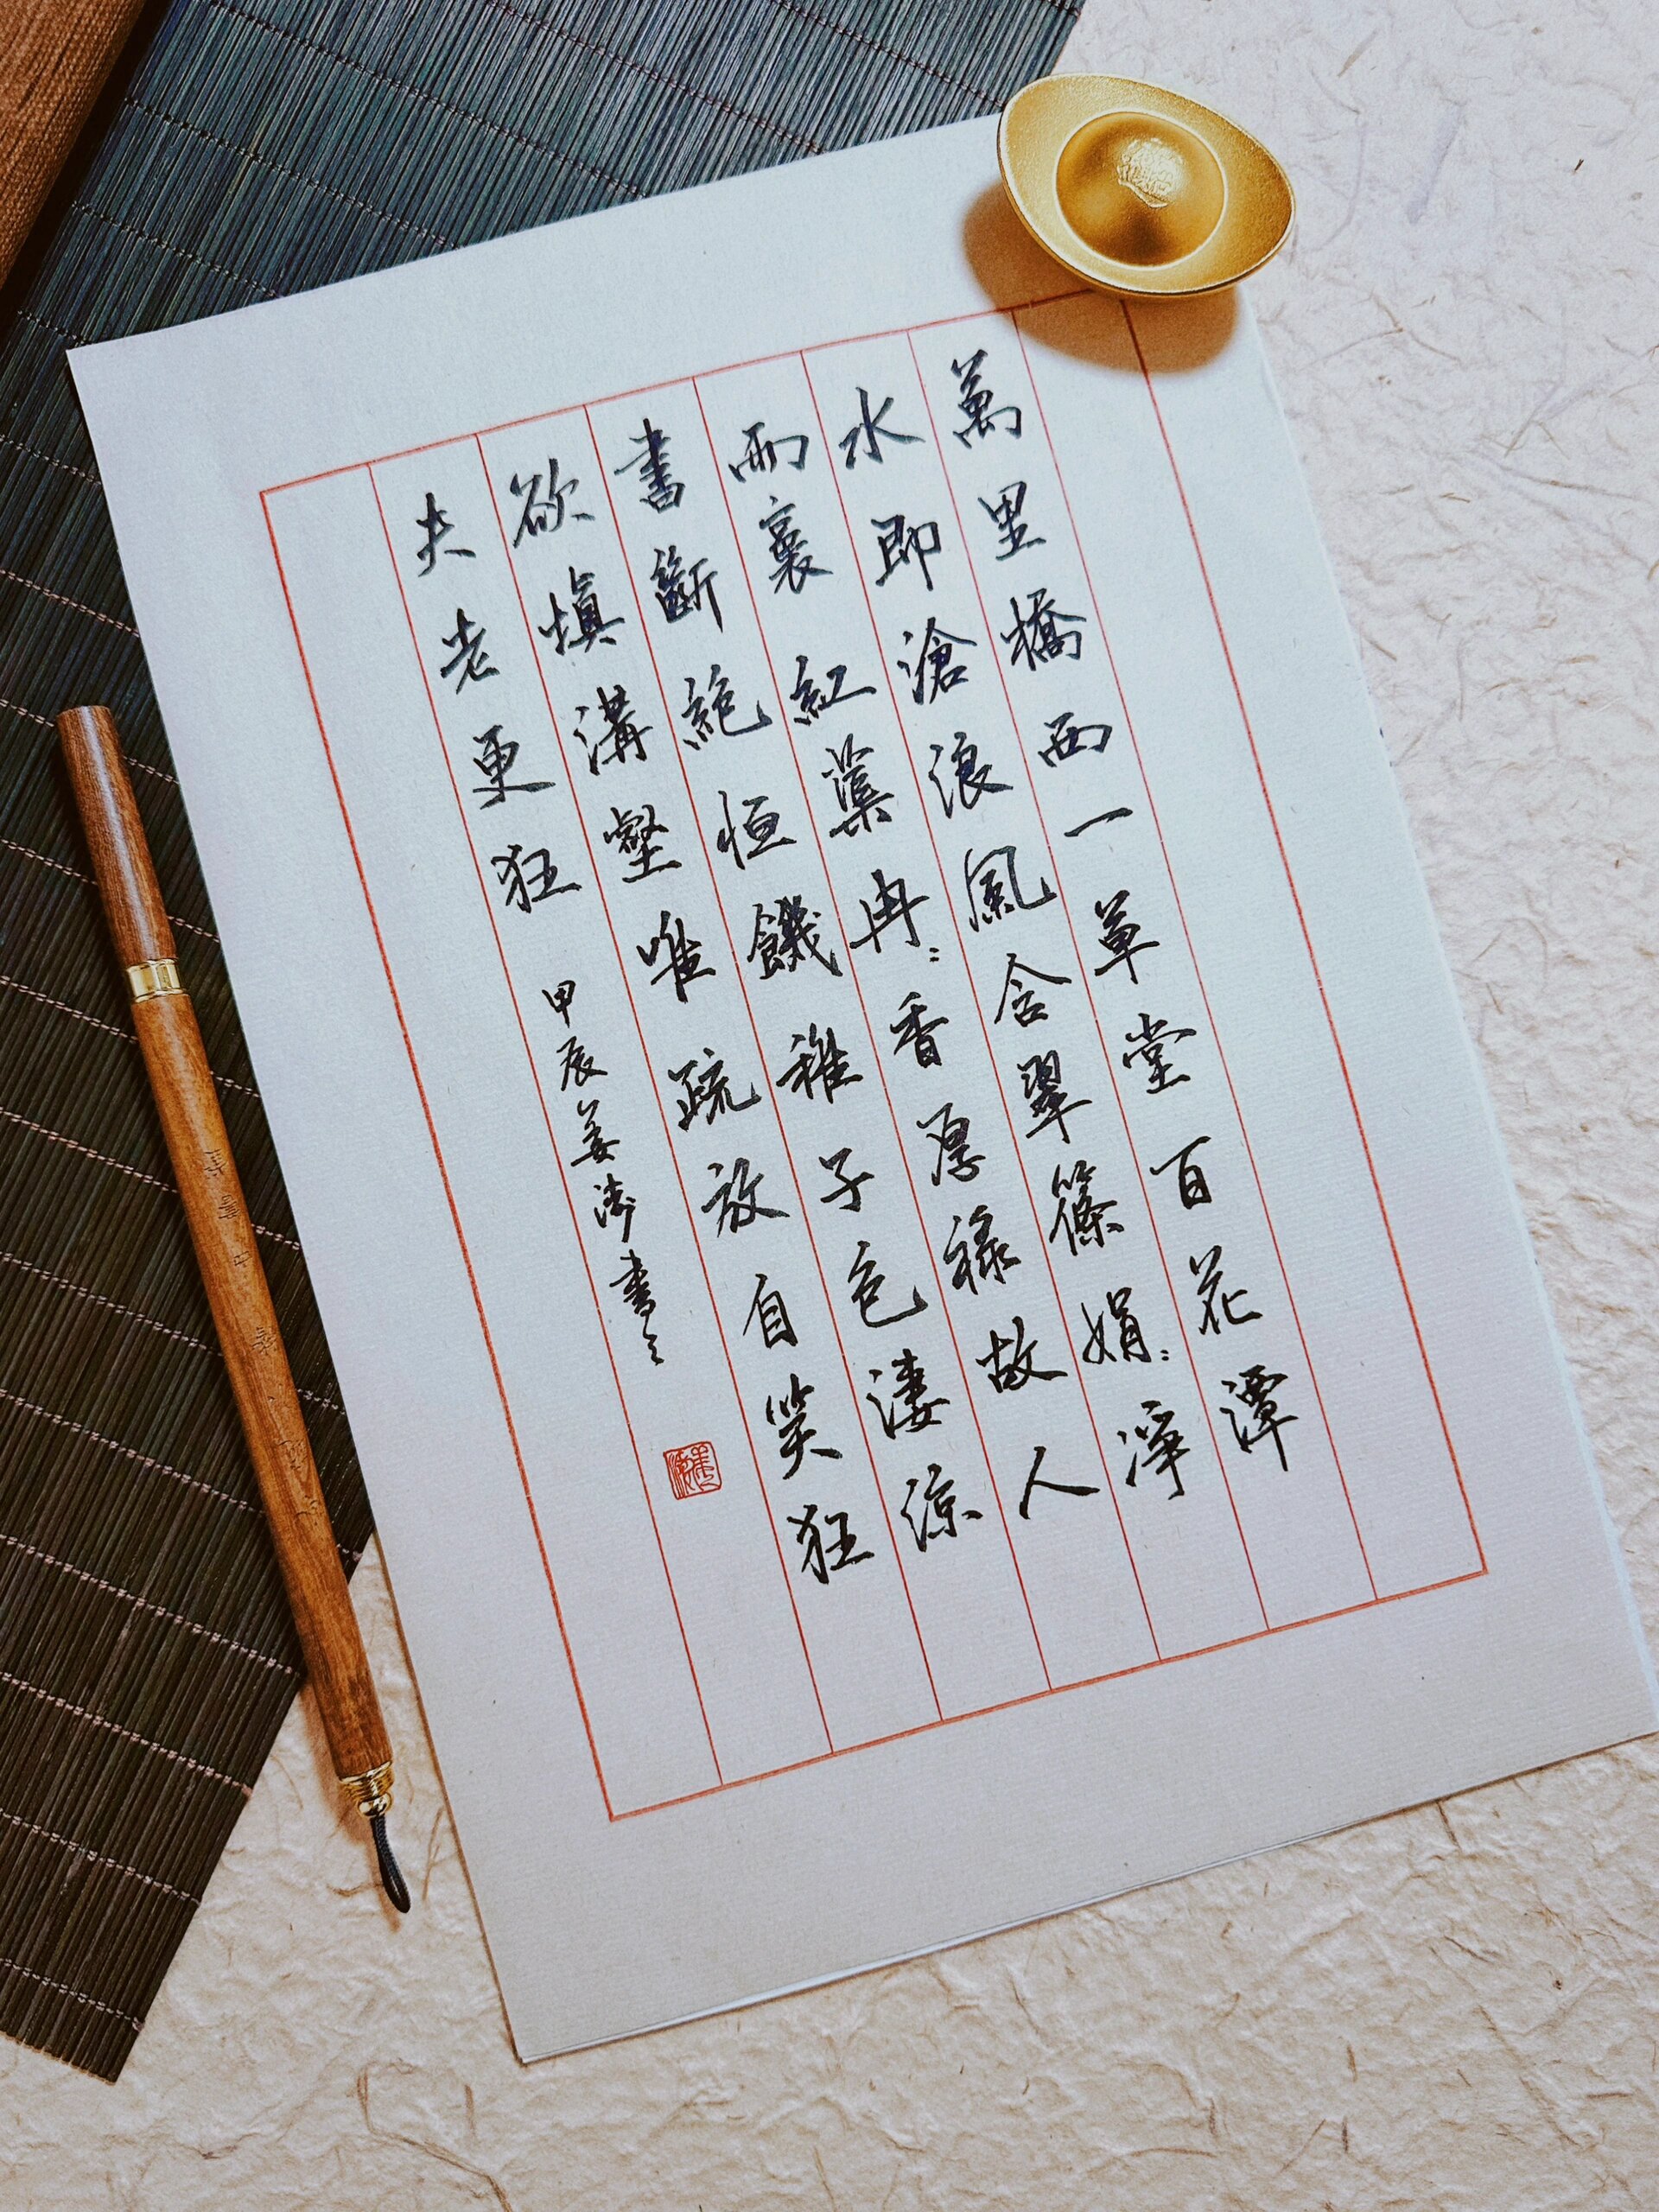 萬里橋西一草堂百花潭
水即滄浪風含翠篠娟々淨
雨裛紅蕖冉々香厚祿故人
書斷絕恒饑稚子色淒涼
欲填溝壑唯疏放自笑狂
夫老更狂 甲辰姜濤書之